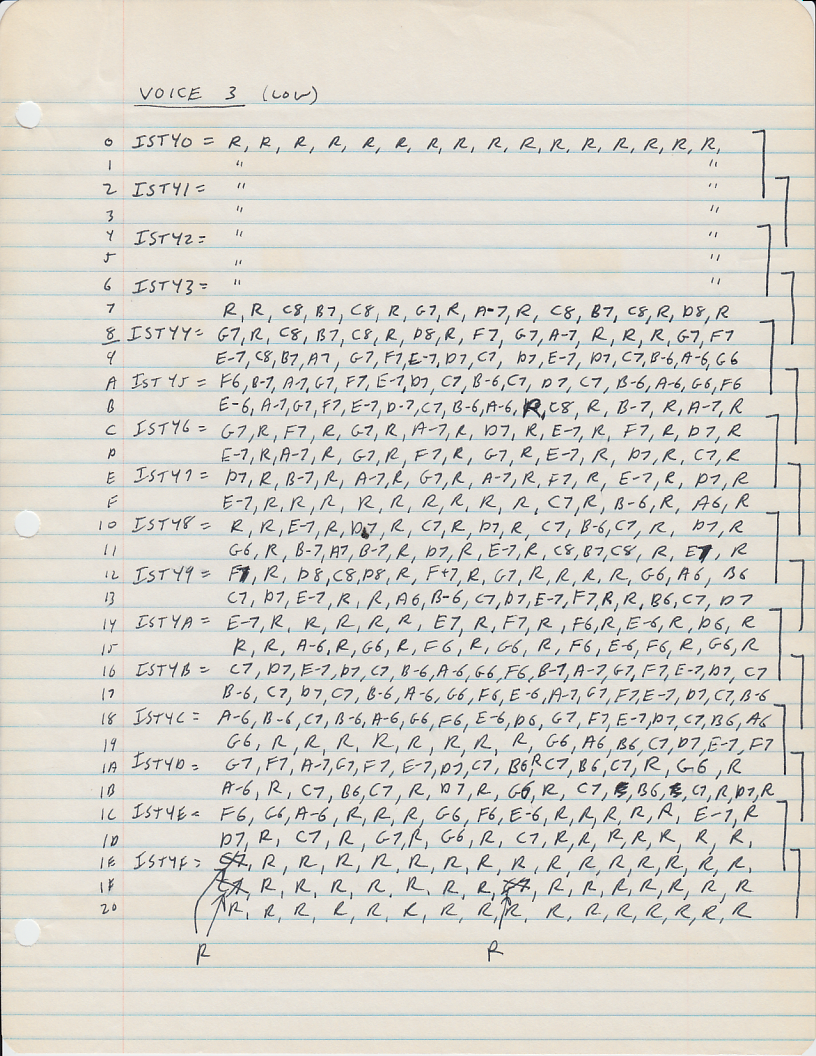 VOICE 3 (LOW)
0 ISTY0 = R, R, R, R, R, R, R, R, R, R, R, R, R, R, R, R,
1 " "
2 ISTY1 = " "
3 " "
4 ISTY2= " "
5 " "
6 ISTY3= " "
7 R, R, C8, B7, C8, R, G7, R, A-7, R, C8, B7, C8, R, D8, R
8 ISTY4= G7, R, C8, B7, C8, R, D8, R, F7, G7, A-7, R, R, R, G7, F7
9 E-7, C8, B7, A7, G7, F7, E-7, D7, C7, D7, E-7, D7, C7, B-6, A-6, G6
A ISTY5= F6, B-7, A-7, G7, F7, E-7, D7, C7, B-6, C7, D7, C7, B-6, A-6, G6, F6
B E-6, A-7, G7, F7, E-7, D-7, C7, B-6, A-6, R, C8, R, B-7, R, A-7, R
C ISTY6= G7, R, F7, R, G7, R, A-7, R, D7, R, E-7, R, F7, R, D7, R
D E-7, R, A-7, R, G7, R, F7, R, G7, R, E-7, R, D7, R, C7, R
E ISTY7= D7, R, B-7, R, A-7, R, G7, R, A-7, R, F7, R, E-7, R, D7, R
F E-7, R, R, R, R, R, R, R, R, R, C7, R, B-6, R, A6, R
10 ISTY8= R, R, E-7, R, D7, R, C7, R, D7, R, C7, B-6, C7, R, D7, R
11 G6, R, B-7, A7, B-7, R, D7, R, E-7, R, C8, B7, C8, R, E7, R
12 ISTY9= F7, R, D8, C8, D8, R, F+7, R, G7, R, R, R, R, G6, A6, B6
13 C7, D7, E-7, R, R, A6, B-6, C7, D7, E-7, F7, R, R, B6, C7, D7
14 ISTYA= E-7, R, R, R, R, R, E7, R, F7, R, F6, R, E-6, R, D6, R
15 R, R, A-6, R, G6, R, F6, R, G6, R, F6, E-6, F6, R, G6, R
16 ISTYB= C7, D7, E-7, D7, C7, B-6, A-6, G6, F6, B-7, A-7, G7, F7, E-7, D7, C7
17 B-6, C7, D7, C7, B-6, A-6, G6, F6, E-6, A-7, G7, F7, E-7, D7, C7, B-6
18 ISTYC= A-6, B-6, C7, B-6, A-6, G6, F6, E-6, D6, G7, F7, E-7, D7, C7, B6, A6
19 G6, R, R, R, R, R, R, R, R, G6, A6, B6, C7, D7, E-7, F7
1A ISTYD= G7, F7, A-7, G7, F7, E-7, D7, C7, B6, R, C7, B6, C7, R, G6, R
1B A-6, R, C7, B6, C7, R, D7, R, G6, R, C7, B6, C7, R, D7, R
1C ISTYE= F6, G6, A-6, R, R, R, G6, F6, E-6, R, R, R, R, R, E-7, R
1D D7, R, C7, R, G7, R, G6, R, C7, R, R, R, R, R, R, R,
1E ISTYF= C7, R, R, R, R, R, R, R, R, R, R, R, R, R, R, R,
1F C7, R, R, R, R, R, R, R, C7, R, R, R, R, R, R, R
20 R, R, R, R, R, R, R, R, R, R, R, R, R, R, R, R
R R